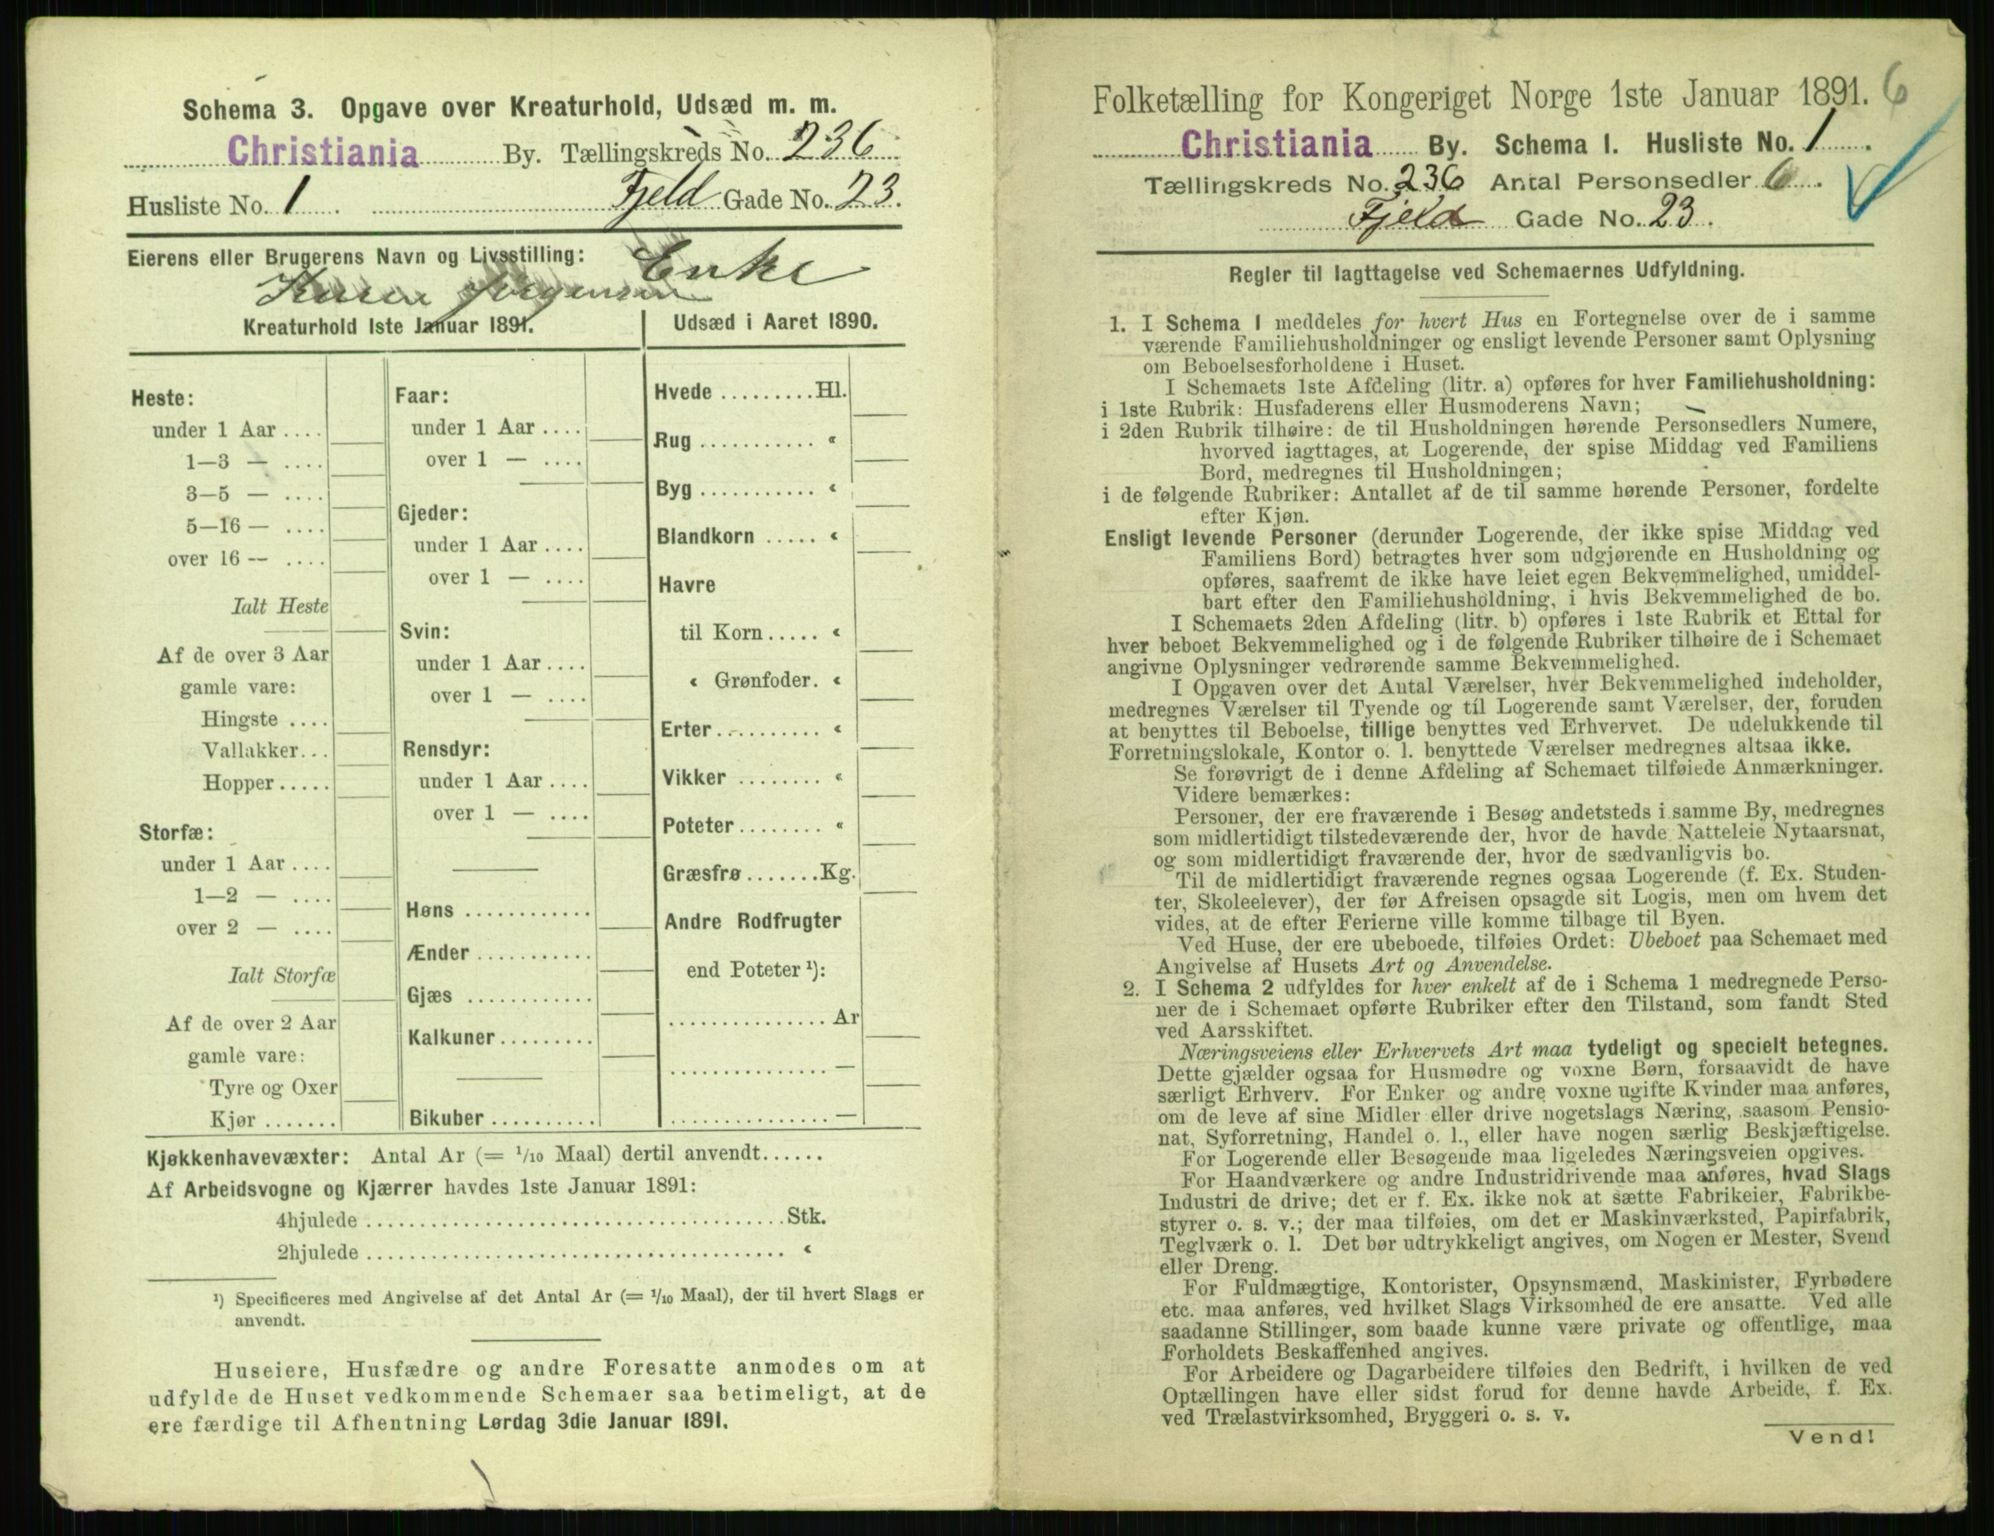 Schema 3. Opgave over Kreaturhold, Udsæd m. m.
Christiania By. Tællingskreds No. 236
Husliste No. 1 Fjeld Gade No. 23.
Eierens eller Brugerens Navn og Livsstilling: Enke
Karen Jørgensen
Kreaturhold 1ste Januar 1891.
Heste:
under 1 Aar ....
1—3 — ....
3—5 — ....
5—16 — ....
over 16 — ....
Ialt Heste
Af de over 3 Aar
gamle vare:
Hingste ....
Vallakker...
Hopper.....
Storfæ:
under 1 Aar ....
1—2 — ....
over 2 — ....
Ialt Storfæ
Af de over 2 Aar
gamle vare:
Tyre og Oxer
Kjør .......
Faar:
under 1 Aar ....
over 1 — ....
Gjeder:
under 1 Aar ....
over 1 — ....
Svin:
under 1 Aar ....
over 1 — ....
Rensdyr:
under 1 Aar ....
over 1 — ....
Høns ............
Ænder ...........
Gjæs ............
Kalkuner.........
Bikuber ..........
Udsæd i Aaret 1890.
Hvede .........Hl.
Rug ........... «
Byg ........... «
Blandkorn ..... «
Havre
til Korn..... «
« Grønfoder. «
Erter.......... «
Vikker ........ «
Poteter........ «
Græsfrø.......Kg.
Andre Rodfrugter
end Poteter ¹):
............... Ar
............... —
............... —
Kjøkkenhavevæxter: Antal Ar (= 1/10 Maal) dertil anvendt......
Af Arbeidsvogne og Kjærrer havdes 1ste Januar 1891:
4hjulede ........................................Stk.
2hjulede ........................................ «
¹) Specificeres med Angivelse af det Antal Ar (= 1/10 Maal), der til hvert Slags er
anvendt.
Huseiere, Husfædre og andre Foresatte anmodes om at
udfylde de Huset vedkommende Schemaer saa betimeligt, at de
ere færdige til Afhentning Lørdag 3die Januar 1891.
Folketælling for Kongeriget Norge 1ste Januar 1891. 6
Christiania By. Schema 1. Husliste No. 1
Tællingskreds No. 236 Antal Personsedler 6
Fjeld Gade No. 23.
Regler til Iagttagelse ved Schemaernes Udfyldning.
1. I Schema 1 meddeles for hvert Hus en Fortegnelse over de i samme
værende Familiehusholdninger og ensligt levende Personer samt Oplysning
om Beboelsesforholdene i Huset.
I Schemaets 1ste Afdeling (litr. a) opføres for hver Familiehusholdning:
i 1ste Rubrik: Husfaderens eller Husmoderens Navn;
i 2den Rubrik tilhøire: de til Husholdningen hørende Personsedlers Numere,
hvorved iagttages, at Logerende, der spise Middag ved Familiens
Bord, medregnes til Husholdningen;
i de følgende Rubriker: Antallet af de til samme hørende Personer, fordelte
efter Kjøn.
Ensligt levende Personer (derunder Logerende, der ikke spise Middag ved
Familiens Bord) betragtes hver som udgjørende en Husholdning og
opføres, saafremt de ikke have leiet egen Bekvemmelighed, umiddel-
bart efter den Familiehusholdning, i hvis Bekvemmelighed de bo.
I Schemaets 2den Afdeling (litr. b) opføres i 1ste Rubrik et Ettal for
hver beboet Bekvemmelighed og i de følgende Rubriker tilhøire de i Schemaet
angivne Oplysninger vedrørende samme Bekvemmelighed.
I Opgaven over det Antal Værelser, hver Bekvemmelighed indeholder,
medregnes Værelser til Tyende og til Logerende samt Værelser, der, foruden
at benyttes til Beboelse, tillige benyttes ved Erhvervet. De udelukkende til
Forretningslokale, Kontor o. l. benyttede Værelser medregnes altsaa ikke.
Se forøvrigt de i denne Afdeling af Schemaet tilføiede Anmærkninger.
Videre bemærkes:
Personer, der ere fraværende i Besøg andetsteds i samme By, medregnes
som midlertidigt tilstedeværende der, hvor de havde Natteleie Nytaarsnat,
og som midlertidigt fraværende der, hvor de sædvanligvis bo.
Til de midlertidigt fraværende regnes ogsaa Logerende (f. Ex. Studen-
ter, Skoleelever), der før Afreisen opsagde sit Logis, men om hvem det
vides, at de efter Ferierne ville komme tilbage til Byen.
Ved Huse, der ere ubeboede, tilføies Ordet: Ubeboet paa Schemaet med
Angivelse af Husets Art og Anvendelse.
2. I Schema 2 udfyldes for hver enkelt af de i Schema 1 medregnede Perso-
ner de i Schemaet opførte Rubriker efter den Tilstand, som fandt Sted
ved Aarsskiftet.
Næringsveiens eller Erhvervets Art maa tydeligt og specielt betegnes.
Dette gjælder ogsaa for Husmødre og voxne Børn, forsaavidt de have
særligt Erhverv. For Enker og andre voxne ugifte Kvinder maa anføres,
om de leve af sine Midler eller drive nogetslags Næring, saasom Pensio-
nat, Syforretning, Handel o. l., eller have nogen særlig Beskjæftigelse.
For Logerende eller Besøgende maa ligeledes Næringsveien opgives.
For Haandværkere og andre Industridrivende maa anføres, hvad Slags
Industri de drive; det er f. Ex. ikke nok at sætte Fabrikeier, Fabrikbe-
styrer o. s. v.; der maa tilføies, om det er Maskinværksted, Papirfabrik,
Teglværk o. l. Det bør udtrykkeligt angives, om Nogen er Mester, Svend
eller Dreng.
For Fuldmægtige, Kontorister, Opsynsmænd, Maskinister, Fyrbødere
etc. maa anføres, ved hvilket Slags Virksomhed de ere ansatte. Ved alle
saadanne Stillinger, som baade kunne være private og offentlige, maa
Forholdets Beskaffenhed angives.
For Arbeidere og Dagarbeidere tilføies den Bedrift, i hvilken de ved
Optællingen have eller sidst forud for denne havde Arbeide, f. Ex.
ved Trælastvirksomhed, Bryggeri o. s. v.
Vend!